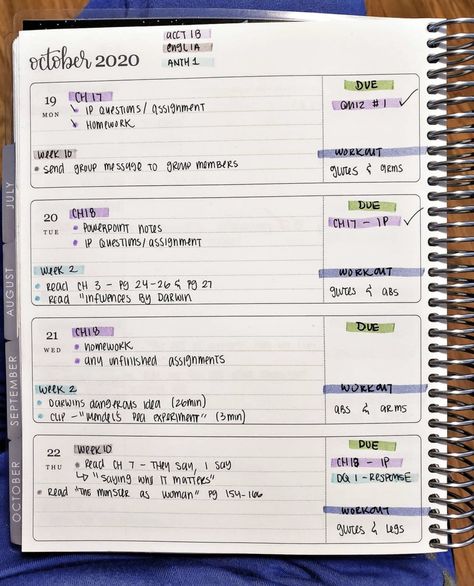 october 2020
ACCT 1B
ENGL 1A
ANTH 1
19
MON
CH 17
IP QUESTIONS/ASSIGNMENT
HOMEWORK
WEEK 10
SEND GROUP MESSAGE TO GROUP MEMBERS
DUE
QUIZ #1
WORKOUT
glutes & arms
20
TUE
CH18
POWERPOINT NOTES
IP QUESTIONS/ASSIGNMENT
WEEK 2
READ CH 3 - PG 24-26 & PG 27
READ "INFLUENCES BY DARWIN
DUE
CH17 - IP
WORKOUT
glutes & ABS
21
WED
CH18
HOMEWORK
ANY UNFINISHED ASSIGNMENTS
WEEK 2
DARWINS DANGEROUS IDEA (26MIN)
CLIP - "MENDEL'S PEA EXPERIMENT" (3 MIN)
DUE
WORKOUT
ABS & ARMS
22
THU
WEEK 10
READ CH 7 - THEY SAY, I SAY
↳ "SAYING WHY IT MATTERS"
READ "THE MONSTER AS WOMAN" PG 154-166
DUE
CH18 - IP
DQ 1 - RESPONSE
WORKOUT
glutes & legs
JULY
AUGUST
SEPTEMBER
OCTOBER